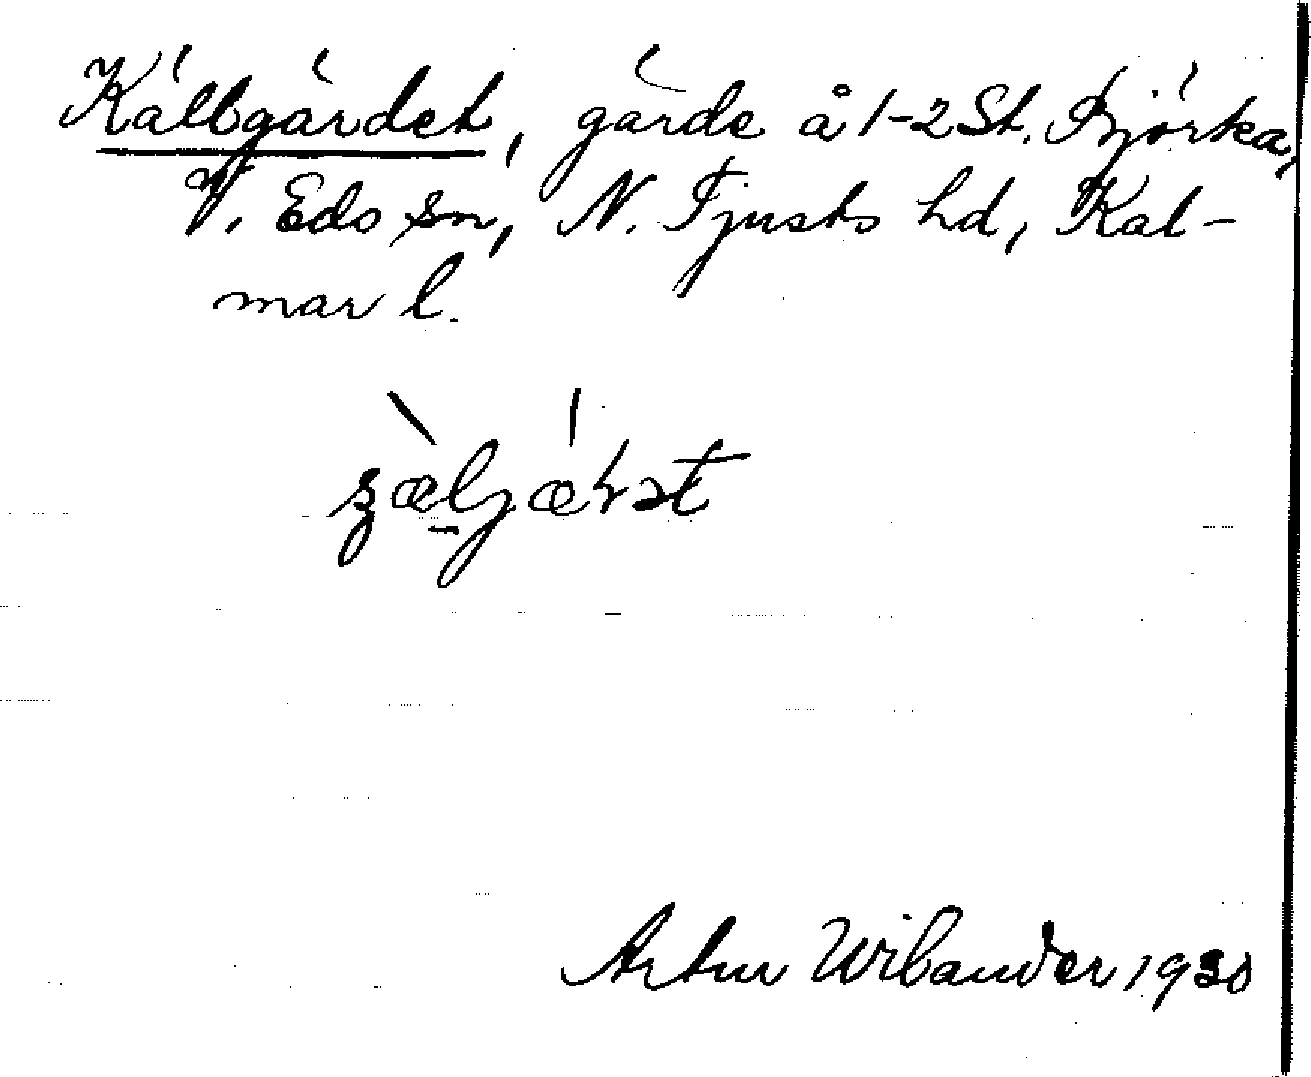 Källbgärdet, gärde å 1-2 St. Björka,
V. Eds sn, N. Tjusts hd, Kal-
mar l.
Artur Wilander 1930